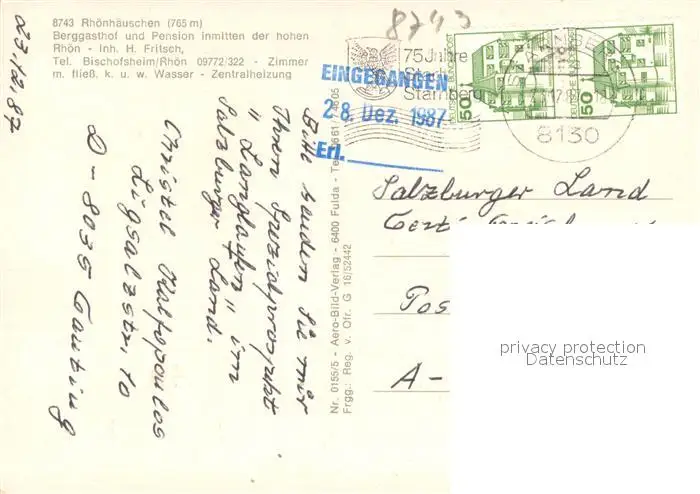 8743 Rhönhäuschen (765 m)
Berggasthof und Pension inmitten der hohen
Rhön - Inh. H. Fritsch,
Tel. Bischofsheim/Rhön 09772/322 - Zimmer
m. fließ. k. u. w. Wasser - Zentralheizung
23.12.87
8743
75 Jahre
Sta
Starnberg
STARNBERG
8130
DEUTSCHE BUNDESPOST
50
50
EINGEGANGEN
28. Dez. 1987
Erl.
Bitte senden Sie mir
Ihren Spezialprospekt
"Langlaufen" im
Salzburger Land.
Christel Kalpopoulos
Ligsalzstr. 10
D-8035 Gauting
Nr. 0155/5 - Aero-Bild-Verlag - 6400 Fulda - Te
Frgg.: Reg. v. Ofr. G 16/52442
Salzburger Land
Pos
A-
privacy protection
Datenschutz